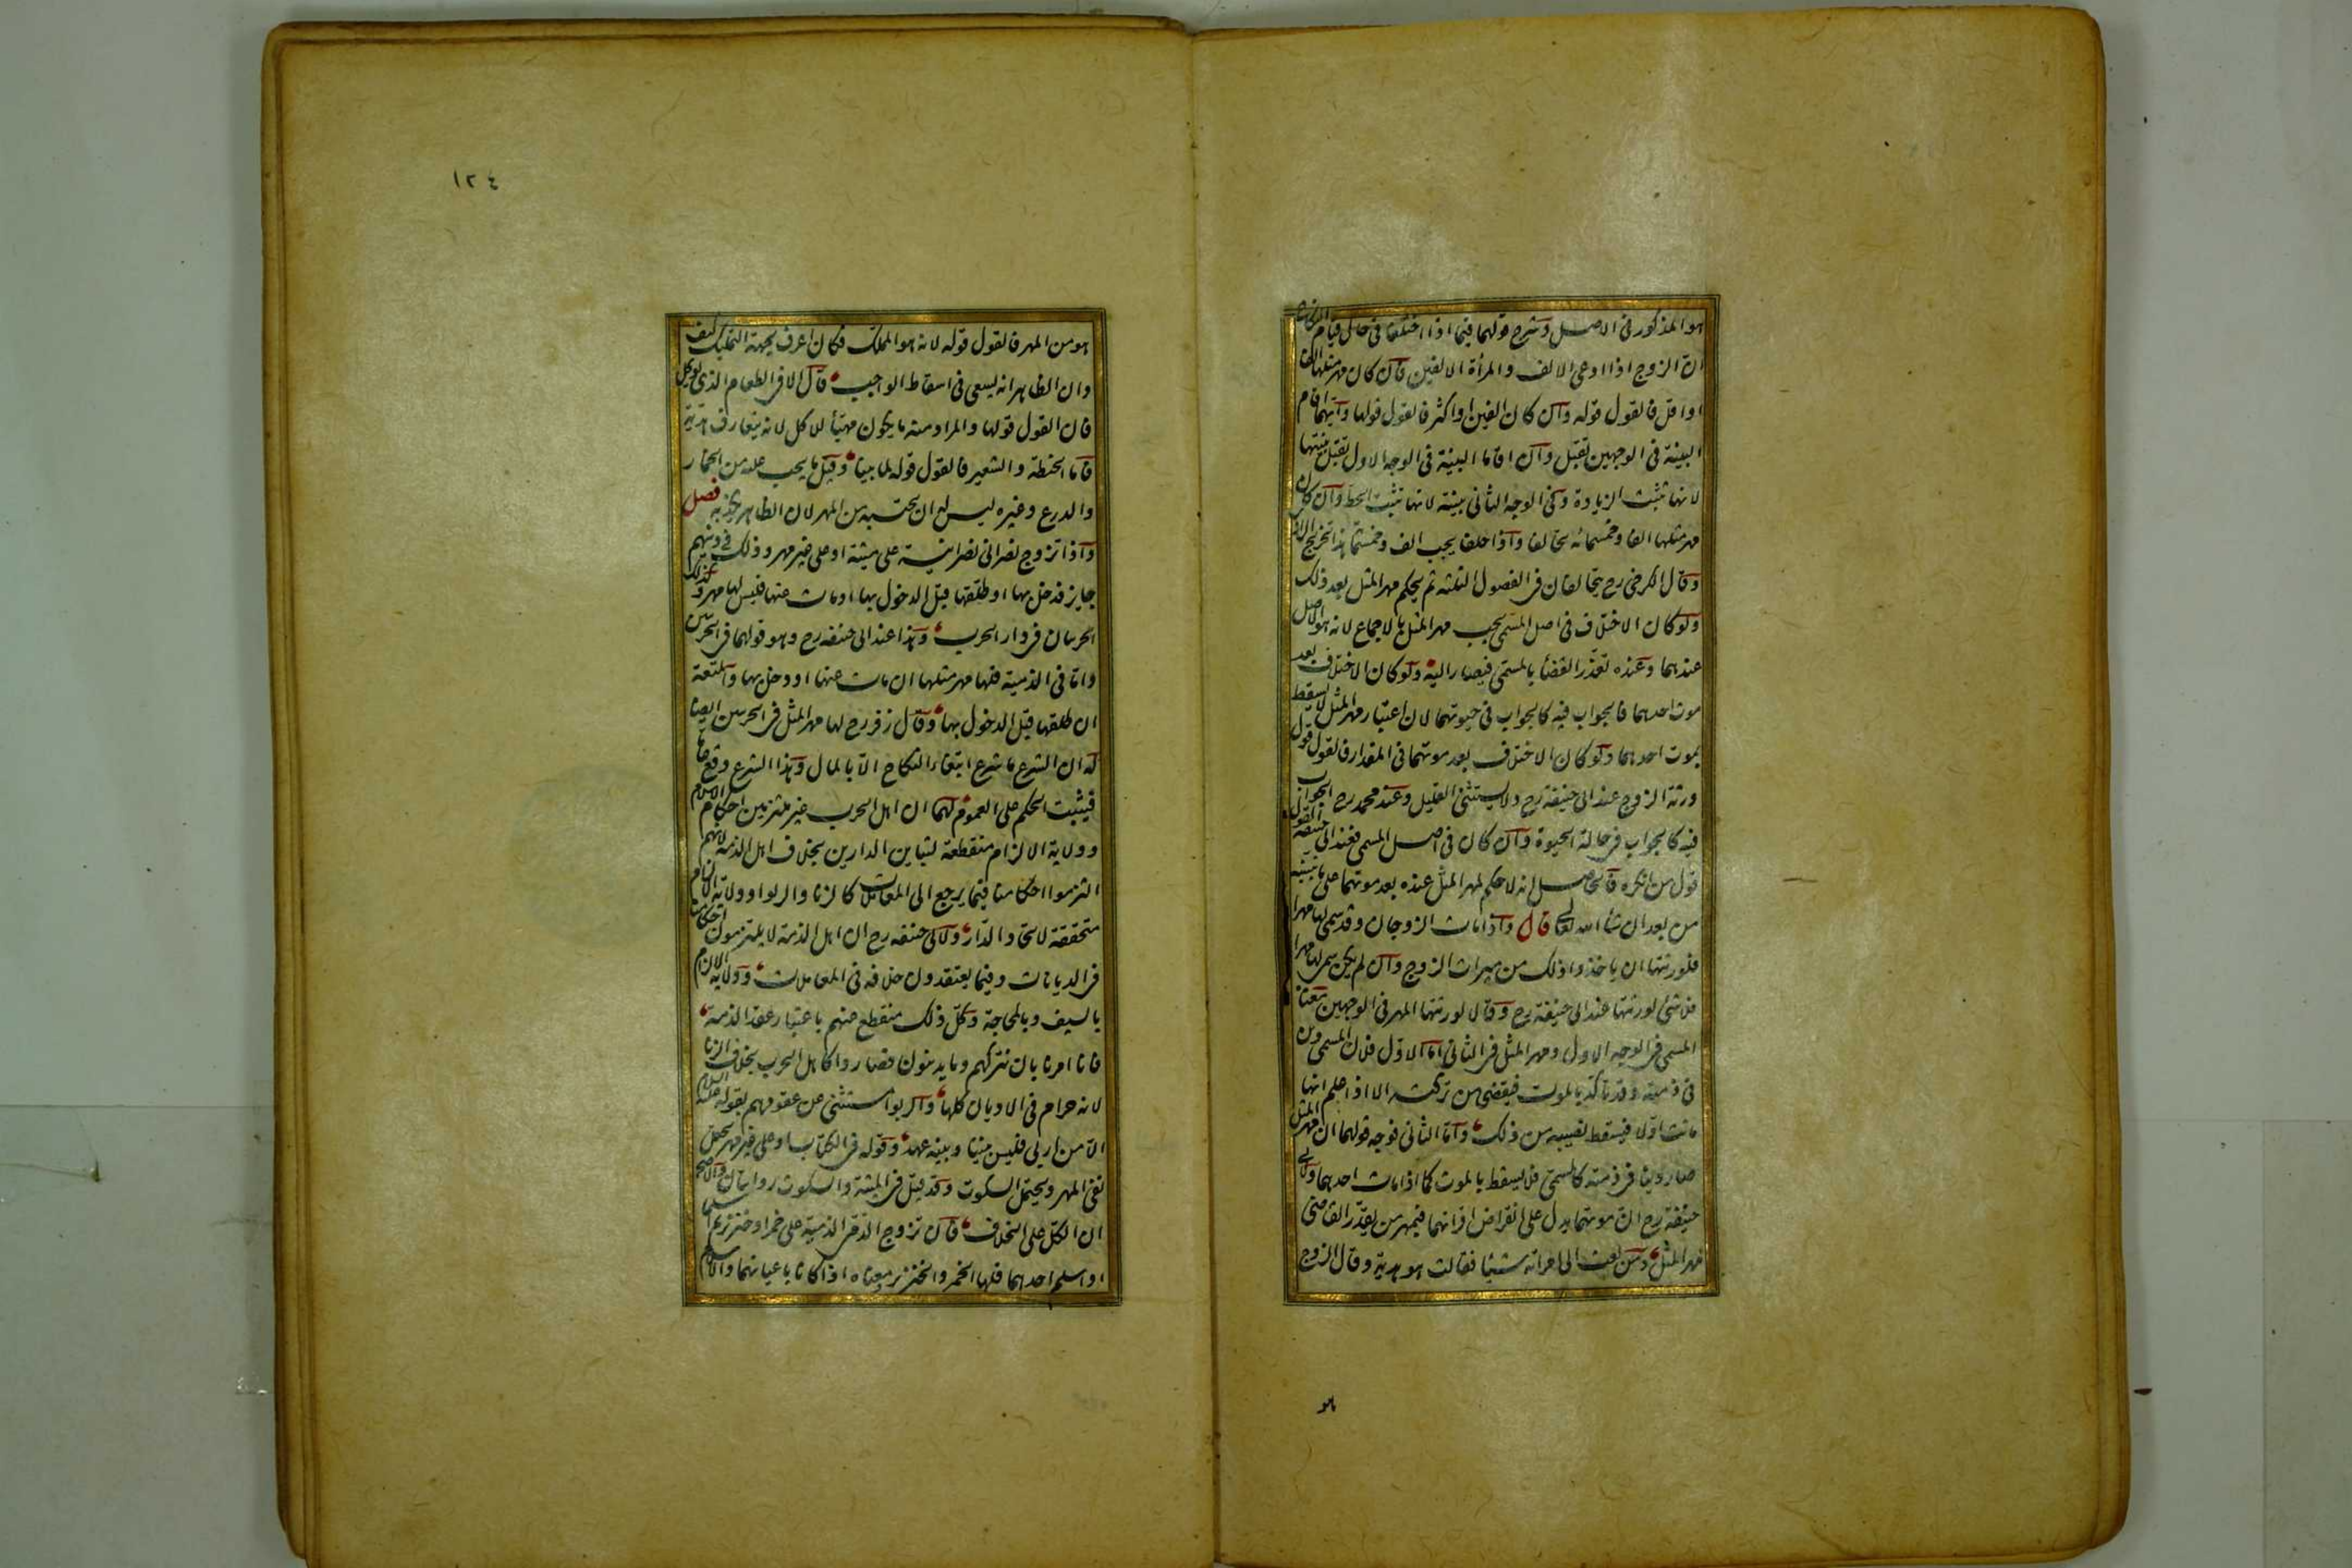 هو المذكور فى الاصل وشرح قولهما فيما اذا اختلفا فى حال قيام النكاح
ان الزوج اذا ادعى الالف والمرأة الالفين فان كان مهر مثلها الفا
او اقل فالقول قوله وان كان الفين او اكثر فالقول قولها وايهما اقام
البينة فى الوجهين تقبل وان اقاما البينة فى الوجه الاول تقبل بينتها
لانها تثبت الزيادة وفى الوجه الثانى بينته لانها تثبت الحط وان كان
مهر مثلها الفا وخمسمائه تحالفا واذا حلفا يجب الف وخمسمائة هذا تخريج الرازى
وقال الكرخى رح يتحالفان فى الفصول الثلثه ثم يحكم مهر المثل بعد ذلك
ولو كان الاختلاف فى اصل المسمى يجب مهر المثل بالاجماع لانه هو الاصل
عندهما وعنده تعذر القضاء بالمسمى فيصار اليه ولو كان الاختلاف بعد
موت احدهما فالجواب فيه كالجواب فى حيوتهما لان اعتبار مهر المثل لا يسقط
بموت احدهما ولو كان الاختلاف بعد موتهما فى المقدار فالقول قول
ورثة الزوج عند ابى حنيفة رح ولا يستثنى القليل وعند محمد رح الجواب
فيه كالجواب فى حالة الحيوة وان كان فى اصل المسمى فعند ابى حنيفة القول
قول من انكره فالحاصل انه لا حكم لمهر المثل عنده بعد موتهما على ما نبينه
من بعد ان شاء الله تعالى قال واذا مات الزوجان وقد سمى لها مهرا
فلورثتها ان ياخذوا ذلك من ميراث الزوج وان لم يكن سمى لها مهرا
فلا شئ لورثتها عند ابى حنيفة رح وقالا لورثتها المهر فى الوجهين معناه
المسمى فى الوجه الاول ومهر المثل فى الثانى اما الاول فلان المسمى دين
فى ذمته وقد تاكد بالموت فيقضى من تركته الا اذا علم انها
ماتت اولا فيسقط نصيبه من ذلك واما الثانى فوجه قولهما ان مهر المثل
صار دينا فى ذمته كالمسمى فلا يسقط بالموت كما اذا مات احدهما ولابى
حنيفة رح ان موتهما يدل على انقراض اقرانهما فبمهر من يقدر القاضى
مهر المثل ومن بعث الى امراته شيئا فقالت هو هدية وقال الزوج
هو
١٢٤
هو من المهر فالقول قوله لانه هو المملك فكان اعرف بجهة التمليك كيف
وان الظاهر انه يسعى فى اسقاط الواجب قال الا فى الطعام الذى يوكل
فان القول قولها والمراد منه ما يكون مهيأ للاكل لانه يتعارف هدية
فاما الحنطة والشعير فالقول قوله لما بينا وقيل ما يجب عليه من الخمار
والدرع وغيره ليس له ان يحتسبه من المهر لان الظاهر يكذبه فصل
واذا تزوج نصرانى نصرانية على ميتة او على غير مهر وذلك فى دينهم
جايز فدخل بها او طلقها قبل الدخول بها او مات عنها فليس لها مهر وكذلك
الحربيان فى دار الحرب وهذا عند ابى حنيفه رح وهو قولهما فى الحربيين
واما فى الذمية فلها مهر مثلها ان مات عنها او دخل بها والمتعة
ان طلقها قبل الدخول بها وقال زفر رح لها مهر المثل فى الحربيين ايضا
له ان الشرع ما شرع ابتغاء النكاح الا بالمال وهذا الشرع وقع عاما
فيثبت الحكم على العموم لهما ان اهل الحرب غير ملتزمين احكام الاسلام
وولاية الالزام منقطعة لتباين الدارين بخلاف اهل الذمة لانهم
التزموا احكامنا فيما يرجع الى المعاملات كالزنا والربوا وولاية الالزام
متحققة لاتحاد الدار ولابى حنيفه رح ان اهل الذمة لا يلتزمون احكامنا
فى الديانات وفيما يعتقدون خلافه فى المعاملات وولاية الالزام
بالسيف وبالمحاجة وكل ذلك منقطع عنهم باعتبار عقد الذمة
فانا امرنا بان نتركهم وما يدينون فصاروا كاهل الحرب بخلاف الزنا
لانه حرام فى الاديان كلها والربوا مستثنى عن عقودهم بقوله عليه السلام
الا من اربى فليس بيننا وبينه عهد وقوله فى الكتاب او على غير مهر يحتمل
نفى المهر ويحتمل السكوت وقد قيل فى الميتة والسكوت روايتان والاصح
ان الكل على الخلاف فان تزوج الذمى الذمية على خمر او خنزير ثم اسلما
او اسلم احدهما فلها الخمر والخنزير معناه اذا كانا باعيانهما والاسلام